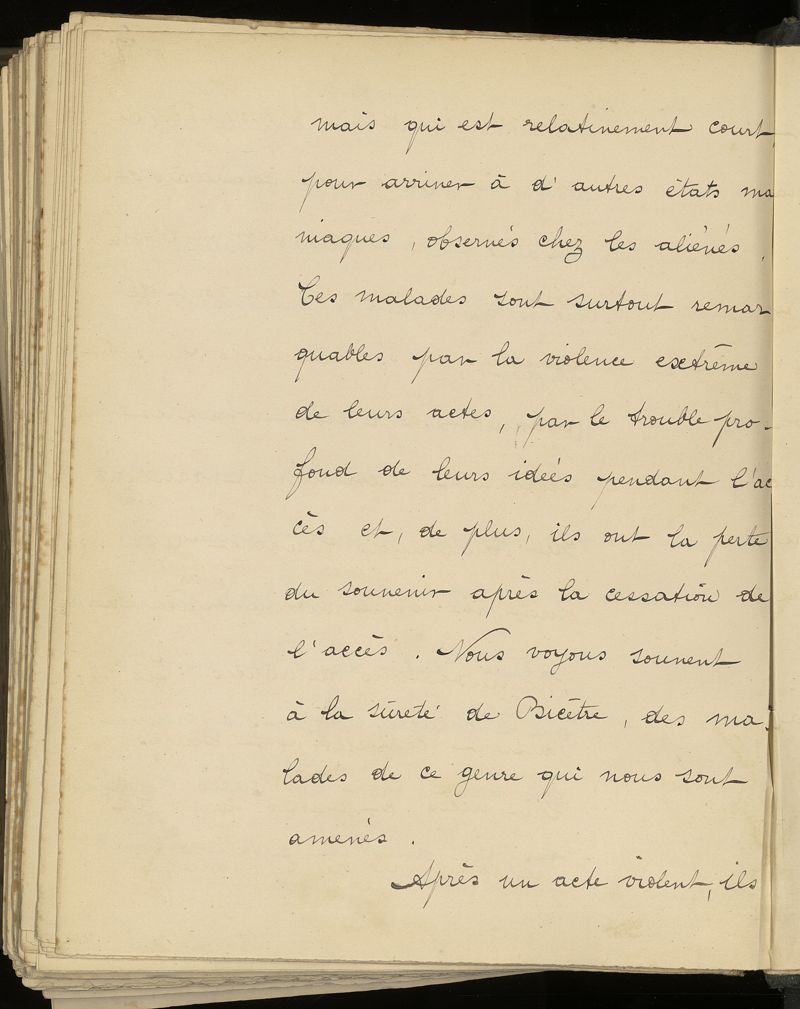 mais qui est relativement court,
pour arriver à d'autres états ma
niaques, observés chez les aliénés.
Ces malades sont surtout remar
quables par la violence extrême
de leurs actes, par le trouble pro-
fond de leurs idées pendant l'ac
cès et, de plus, ils ont la perte
du souvenir après la cessation de
l'accès. Nous voyons souvent
à la sûreté de Bicêtre, des ma-
lades de ce genre qui nous sont
amenés.
Après un acte violent, ils